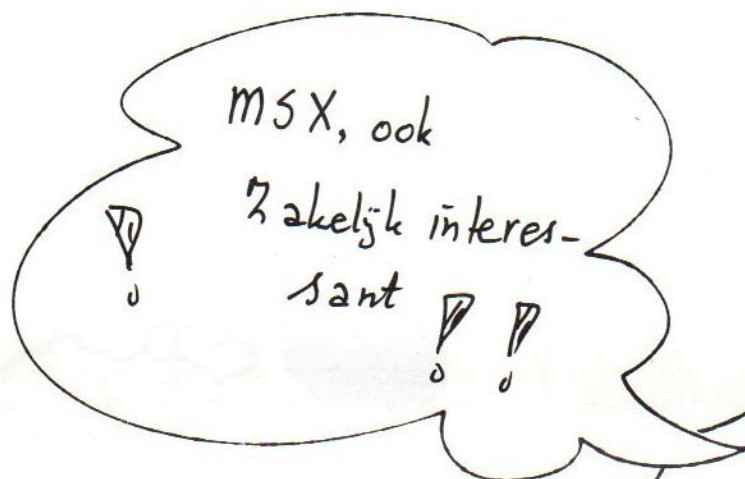 MSX, ook
! Zakelijk interes-
sant !!